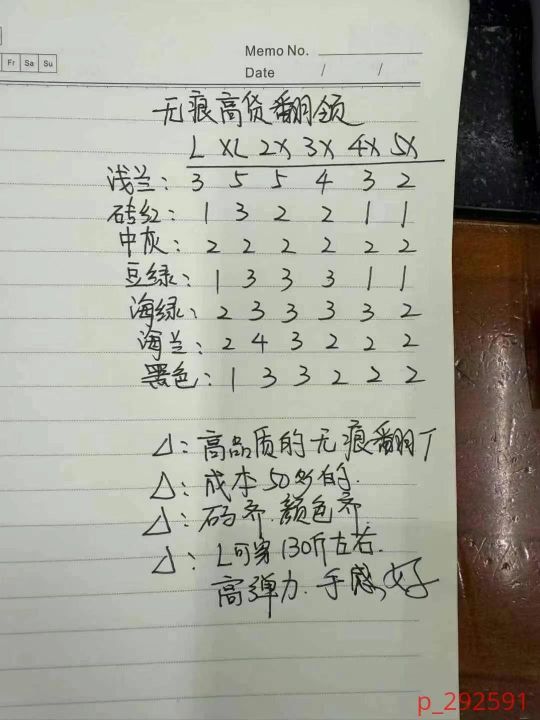 Fr Sa Su
Memo No.
Date / /
无痕高货翻领
L XL 2X 3X 4X 5X
浅兰: 3 5 5 4 3 2
砖红: 1 3 2 2 1 1
中灰: 2 2 2 2 2 2
豆绿: 1 3 3 3 1 1
海绿: 2 3 3 3 3 2
海兰: 2 4 3 2 2 2
黑色: 1 3 3 2 2 2
△: 高品质的无痕翻T
△: 成本50多的.
△: 码齐.颜色齐.
△: L可穿130斤左右.
高弹力.手感好
p_292591